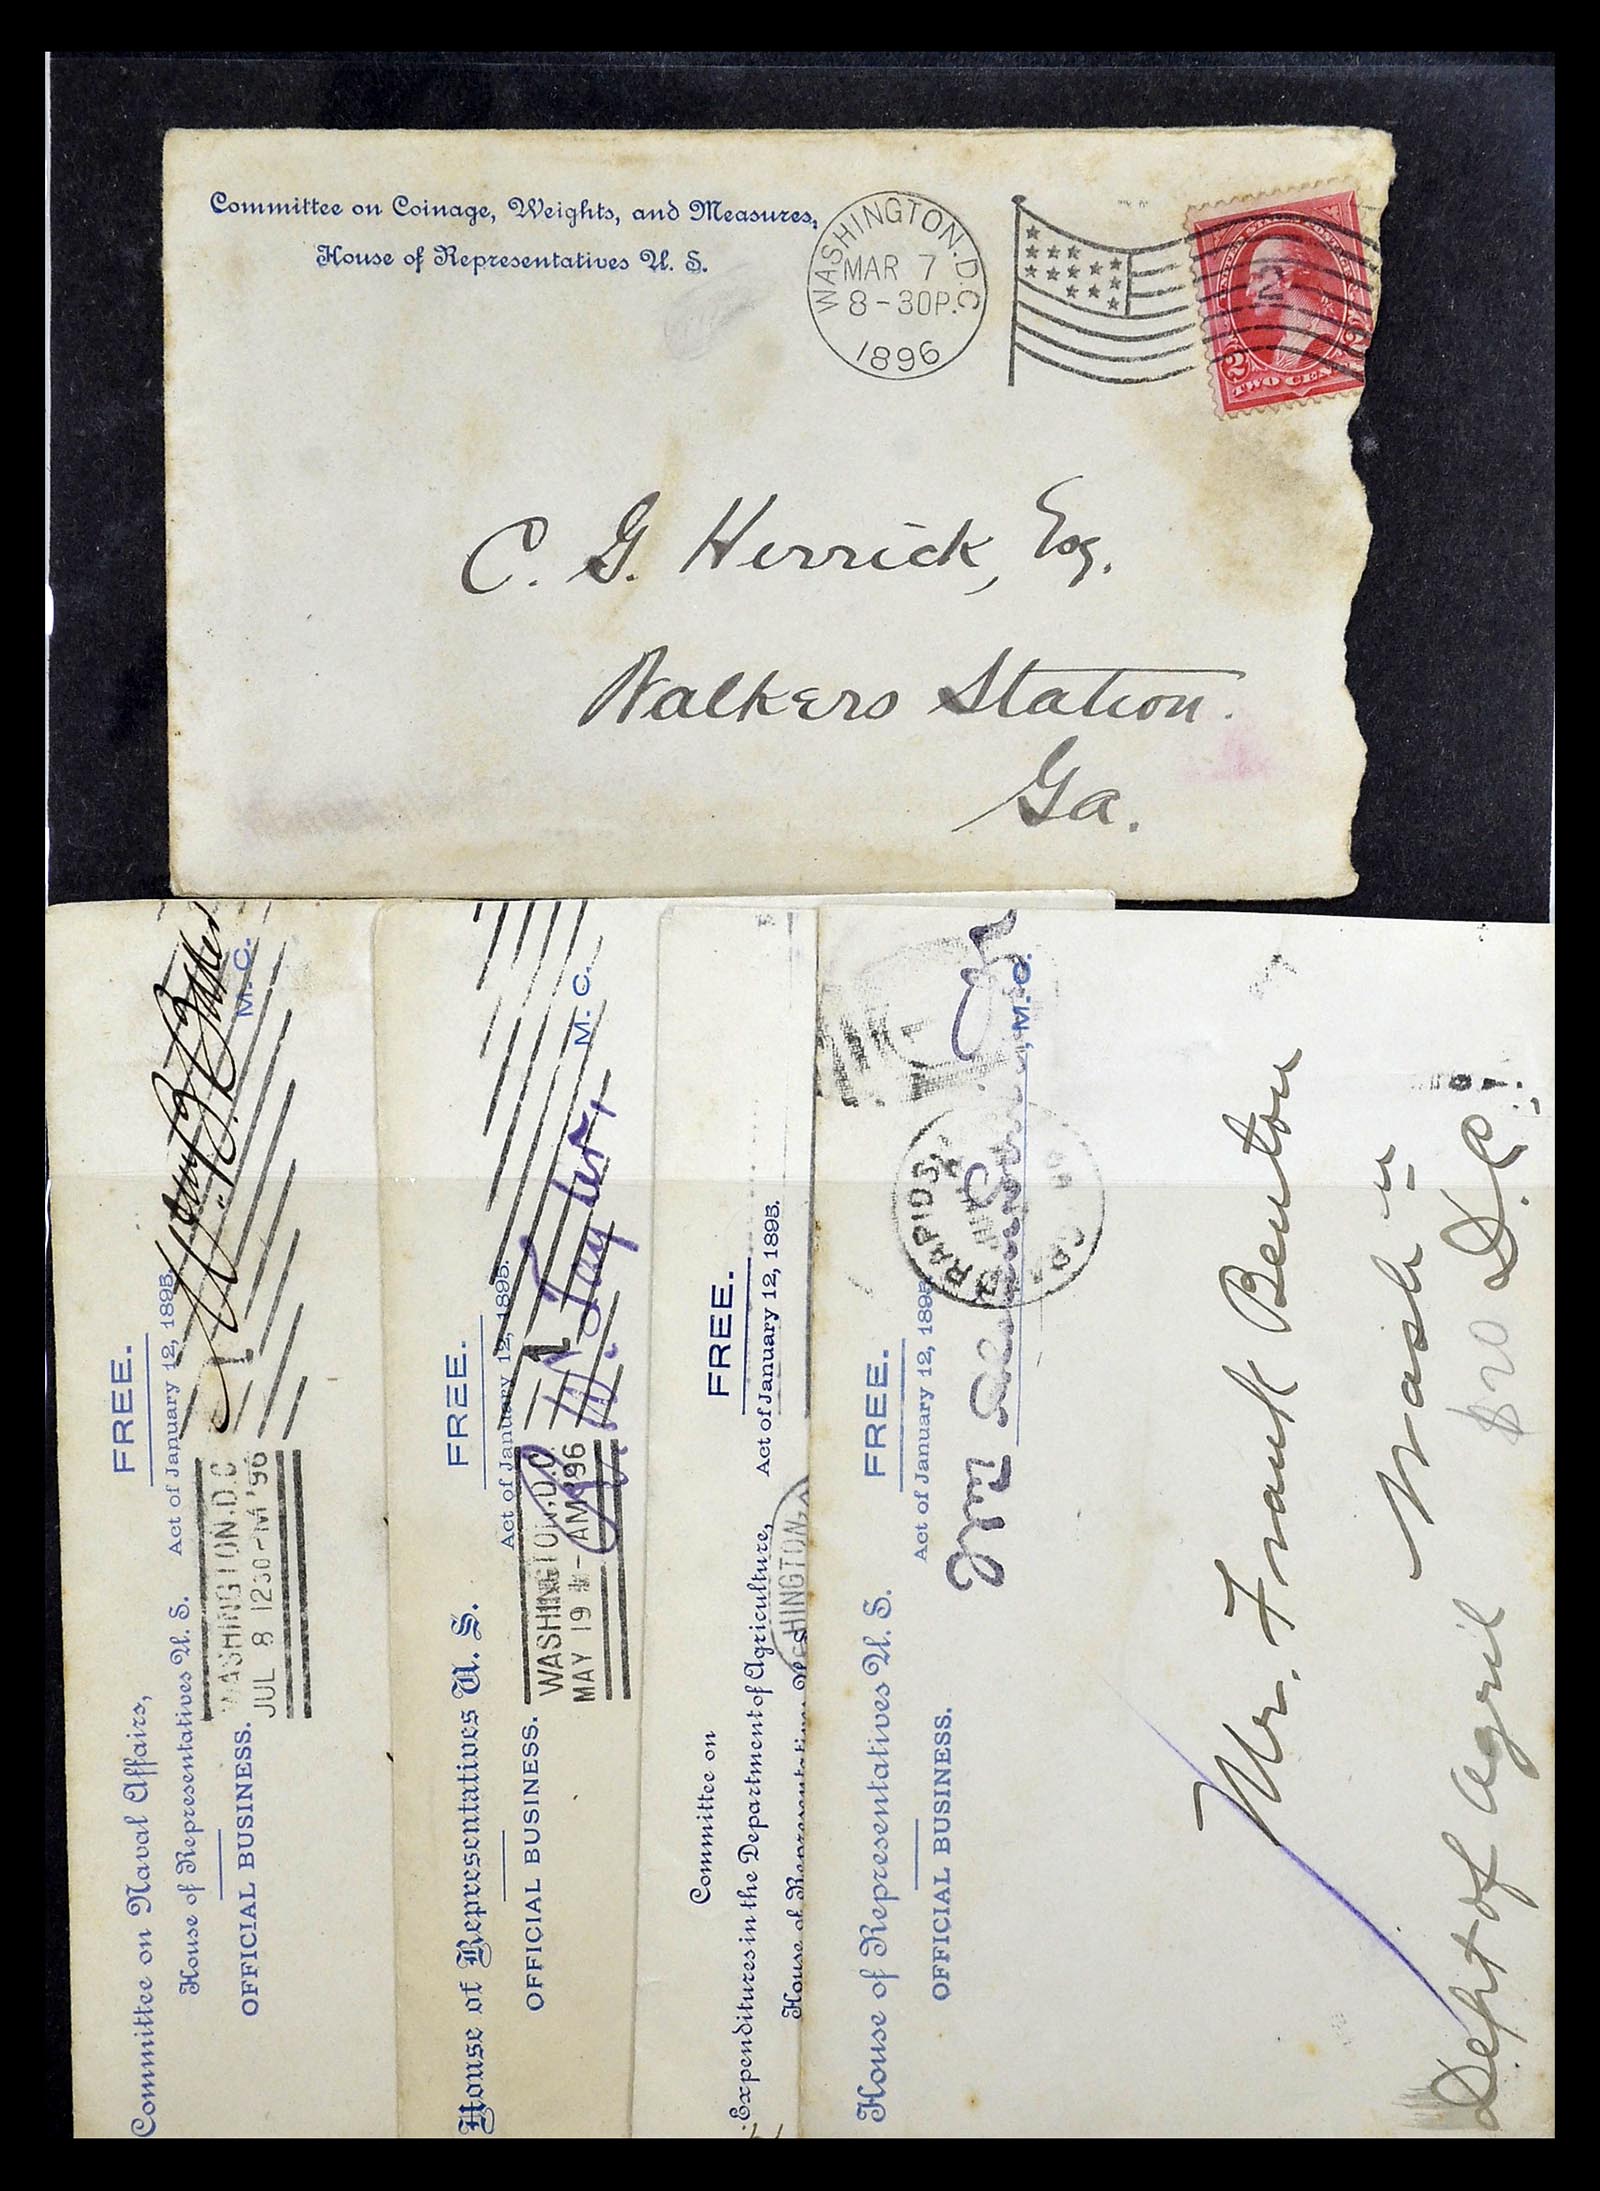 Committee on Coinage, Weights, and Measures,
House of Representatives U. S.
WASHINGTON, D.C.
MAR 7
8-30P.
1896
2
2
TWO CENTS
C. G. Herrick, Esq.
Walkers Station.
Ga.
Committee on Naval Affairs,
House of Representatives U. S.
OFFICIAL BUSINESS.
FREE.
Act of January 12, 1895.
M. C.
WASHINGTON, D.C
JUL 8 1230-M '96
1
House of Representatives U. S.
OFFICIAL BUSINESS.
FREE.
Act of January 12, 1895.
M. C.
WASHINGTON, D.C.
MAY 19 AM '96
1
Tayler,
Committee on
Expenditures in the Department of Agriculture,
House of Representatives U. S.
FREE.
Act of January 12, 1895.
HINGTON,
House of Representatives U. S.
OFFICIAL BUSINESS.
FREE.
Act of January 12, 1895
, M. C.
RAPIDS
Mr. Frank Benton
Wash n
Dept of Agril D.C.
$20